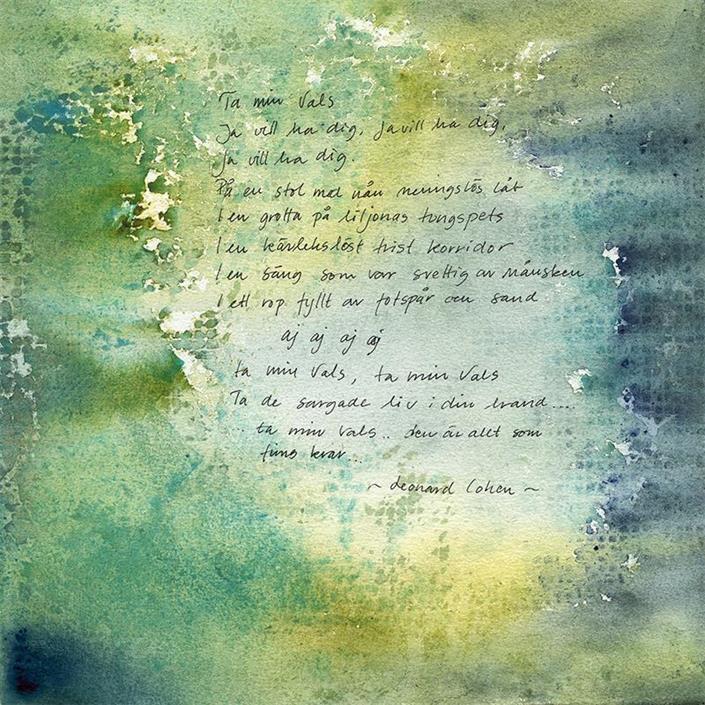 Ta min Vals
Ja vill ha dig, Ja vill ha dig,
Ja vill ha dig.
På en stol med nån meningslös låt
I en grotta på liljonas tungspets
I en kärlekslöst trist korridor
I en säng som var svettig av månsken
I ett rop fyllt av fotspår och sand
aj aj aj aj
ta min Vals, ta min Vals
Ta de sargade liv i din hand....
ta min Vals.. den är allt som
finns kvar...
~ Leonard Cohen ~